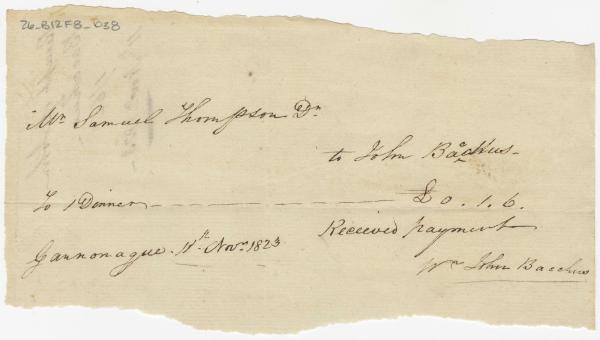 26_B12F8_038
Mr Samuel Thompson Dr
to John Backus-
To 1 Dinner £0.1.6.
Gannonague. 11th Novr 1823
Received payment
John Bacchus